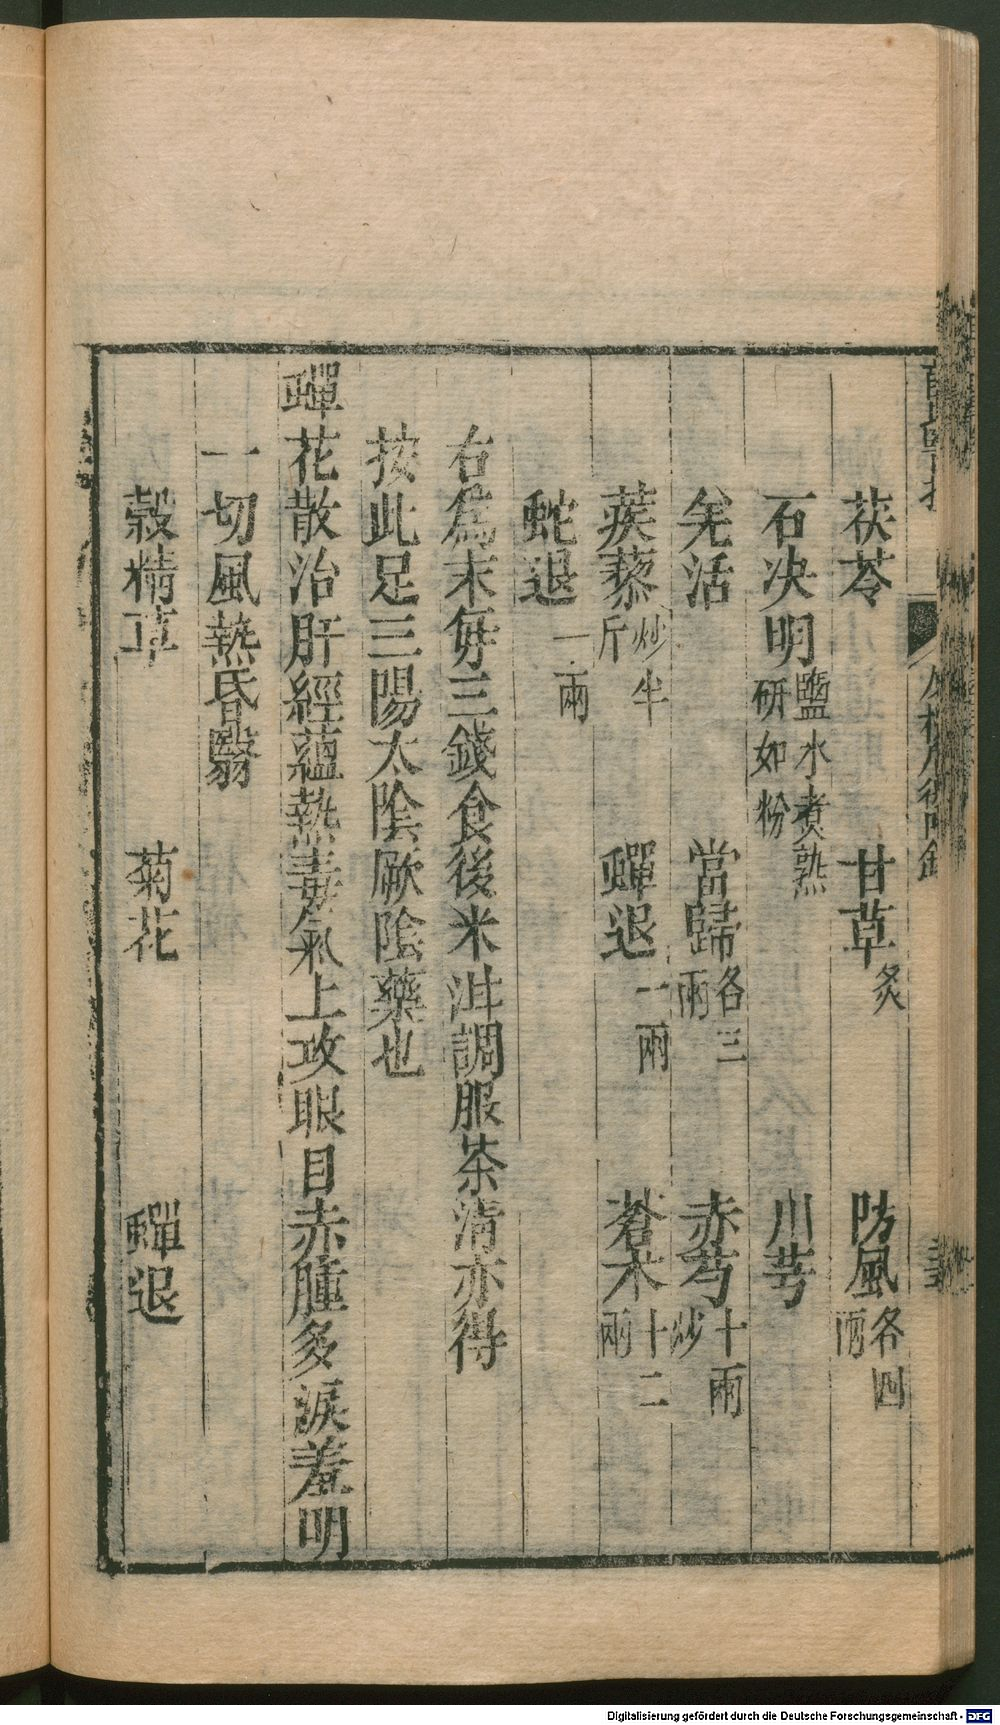 茯苓　甘草炙　防風各四兩
石决明鹽水煮熟研如粉　川芎
羌活　當歸各三兩　赤芍十兩炒
蒺藜炒半斤　蟬退一兩　蒼术十二兩
蛇退一兩
右爲末每三錢食後米泔調服茶清亦得
按此足三陽太陰厥陰藥也
蟬花散治肝經蘊熱毒氣上攻眼目赤腫多淚羞明
一切風熱昏翳
穀精草　菊花　蟬退
Digitalisierung gefördert durch die Deutsche Forschungsgemeinschaft - DFG